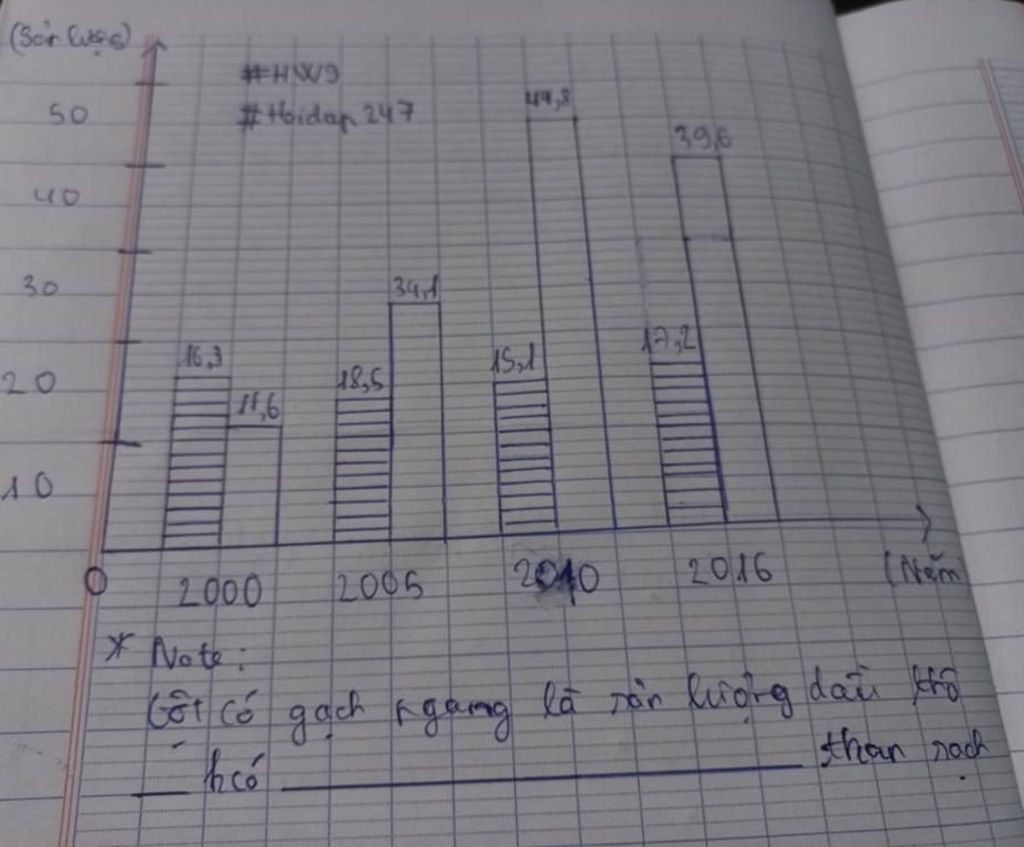 (Sản lượng)
#HW9
#Hoidap247
50
40
30
20
10
0
16,3
11,6
18,5
34,1
15,1
44,8
17,2
39,6
2000
2005
2010
2016
(Năm
* Note:
Cột có gạch ngang là sản lượng dầu thô
___ hcó ___ than sạch